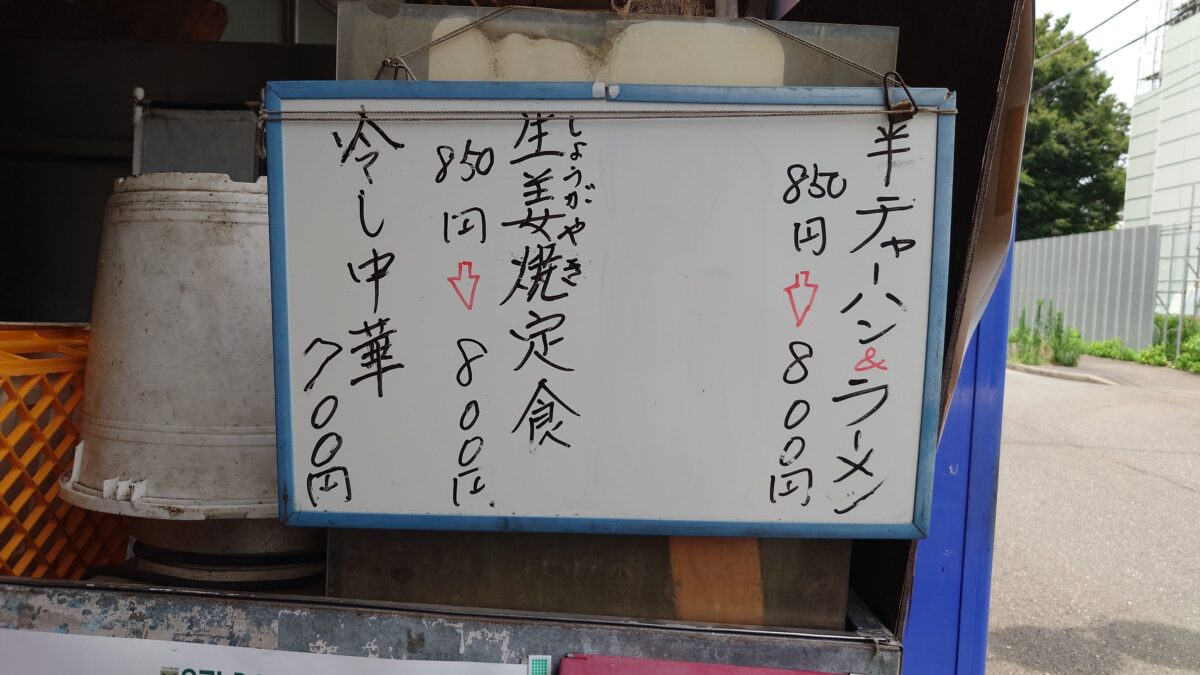 半チャーハン&ラーメン
850円⇩800円
しょうがやき
生姜焼定食
850円⇩800円
冷し中華
700円